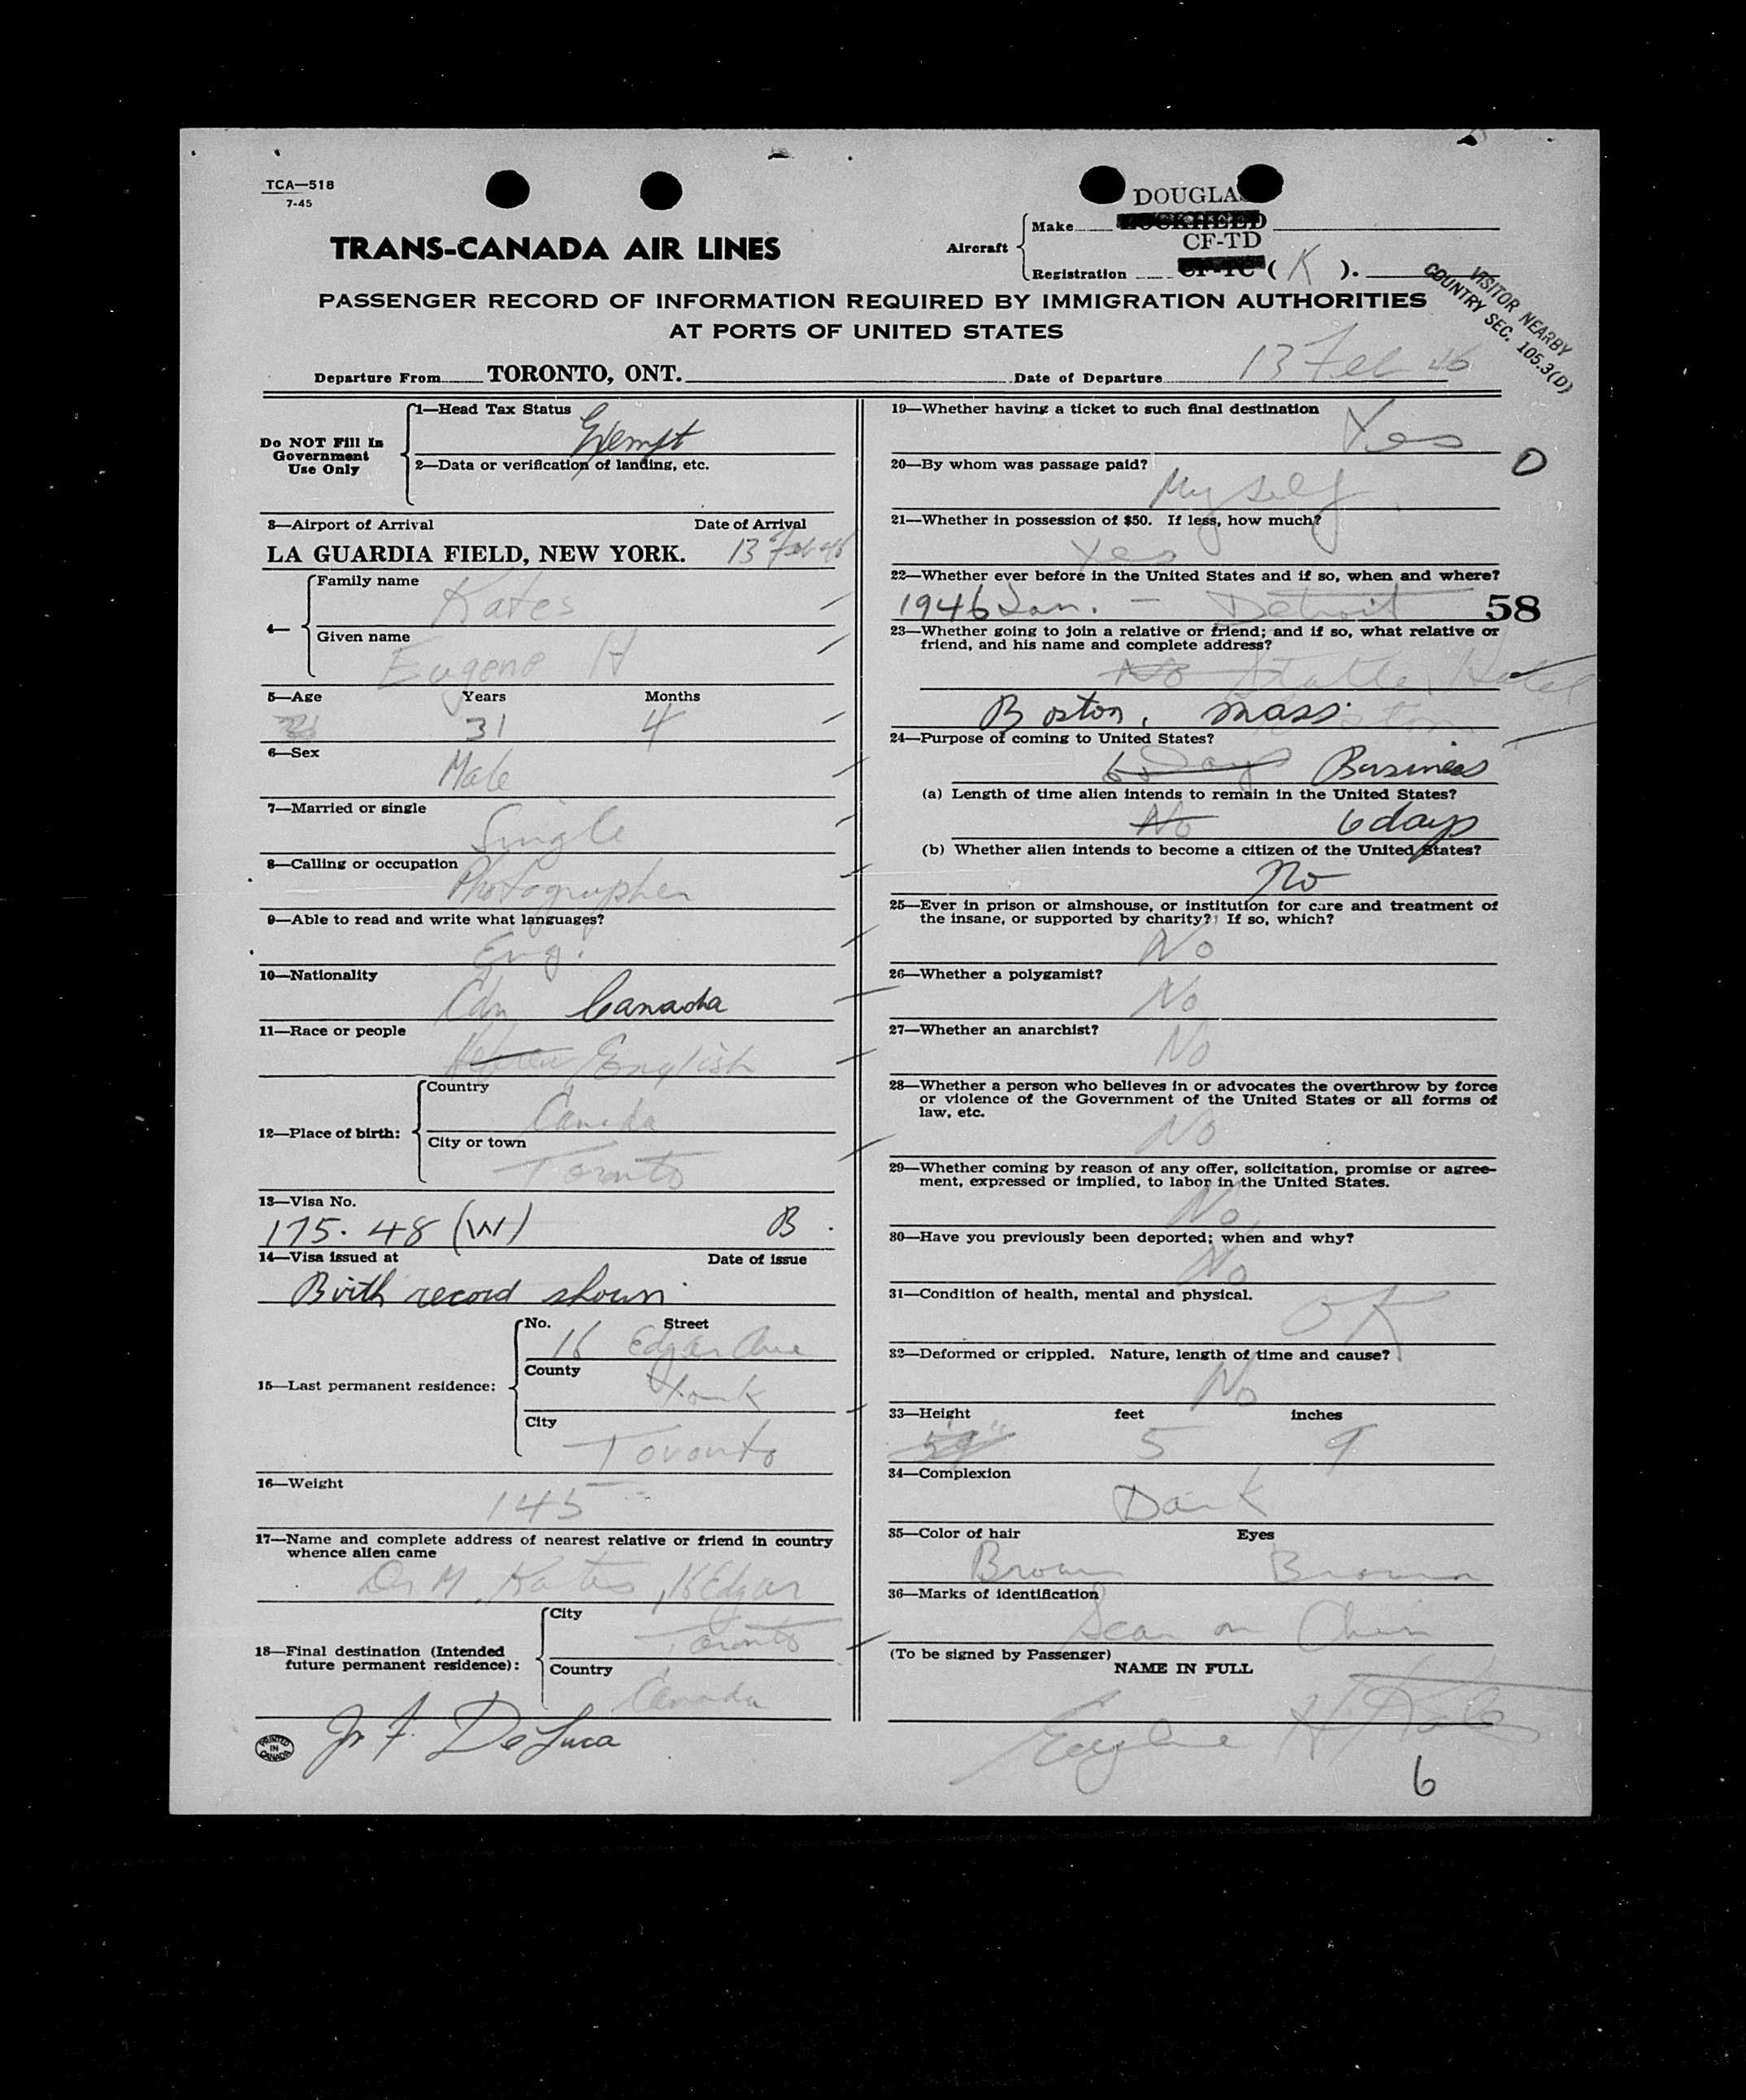 TCA—518
7-45
TRANS-CANADA AIR LINES
Aircraft
Make
DOUGLAS
LOCKHEED
CF-TD
Registration CF-TC ( K ).
VISITOR NEARBY
COUNTRY SEC. 105.3(D)
PASSENGER RECORD OF INFORMATION REQUIRED BY IMMIGRATION AUTHORITIES
AT PORTS OF UNITED STATES
Departure From TORONTO, ONT. Date of Departure 13 Feb 46
Do NOT Fill In
Government
Use Only
1—Head Tax Status
Exempt
2—Data or verification of landing, etc.
3—Airport of Arrival Date of Arrival
LA GUARDIA FIELD, NEW YORK. 13 Feb 46
4—
Family name
Kates
Given name
Eugene H
5—Age Years Months
31 4
6—Sex
Male
7—Married or single
Single
8—Calling or occupation
Photographer
9—Able to read and write what languages?
Eng.
10—Nationality
Cdn Canada
11—Race or people
Hebrew English
12—Place of birth:
Country
Canada
City or town
Toronto
13—Visa No.
175.48 (W) B
14—Visa issued at Date of issue
Birth record shown
15—Last permanent residence:
No. Street
16 Edgar Ave
County
York
City
Toronto
16—Weight
145
17—Name and complete address of nearest relative or friend in country
whence alien came
Dr M. Kates, 16 Edgar
18—Final destination (Intended
future permanent residence):
City
Toronto
Country
Canada
PRINTED
IN
CANADA
Jr F. DeLuca
19—Whether having a ticket to such final destination
Yes
O
20—By whom was passage paid?
Myself
21—Whether in possession of $50. If less, how much?
Yes
22—Whether ever before in the United States and if so, when and where?
1946 Jan. — Detroit 58
23—Whether going to join a relative or friend; and if so, what relative or
friend, and his name and complete address?
No Statler Hotel
Boston, Mass. Boston
24—Purpose of coming to United States?
6 Days Business
(a) Length of time alien intends to remain in the United States?
No 6 days
(b) Whether alien intends to become a citizen of the United States?
No
25—Ever in prison or almshouse, or institution for care and treatment of
the insane, or supported by charity? If so, which?
No
26—Whether a polygamist?
No
27—Whether an anarchist?
No
28—Whether a person who believes in or advocates the overthrow by force
or violence of the Government of the United States or all forms of
law, etc.
No
29—Whether coming by reason of any offer, solicitation, promise or agree-
ment, expressed or implied, to labor in the United States.
No
30—Have you previously been deported; when and why?
No
31—Condition of health, mental and physical.
OK
32—Deformed or crippled. Nature, length of time and cause?
No
33—Height feet inches
5'9" 5 9
34—Complexion
Dark
35—Color of hair Eyes
Brown Brown
36—Marks of identification
Scar on Chin
(To be signed by Passenger)
NAME IN FULL
Eugene H Kates
6